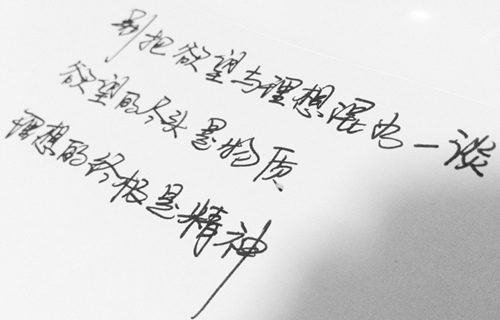 别把欲望与理想混为一谈
欲望的尽头是物质
理想的终极是精神